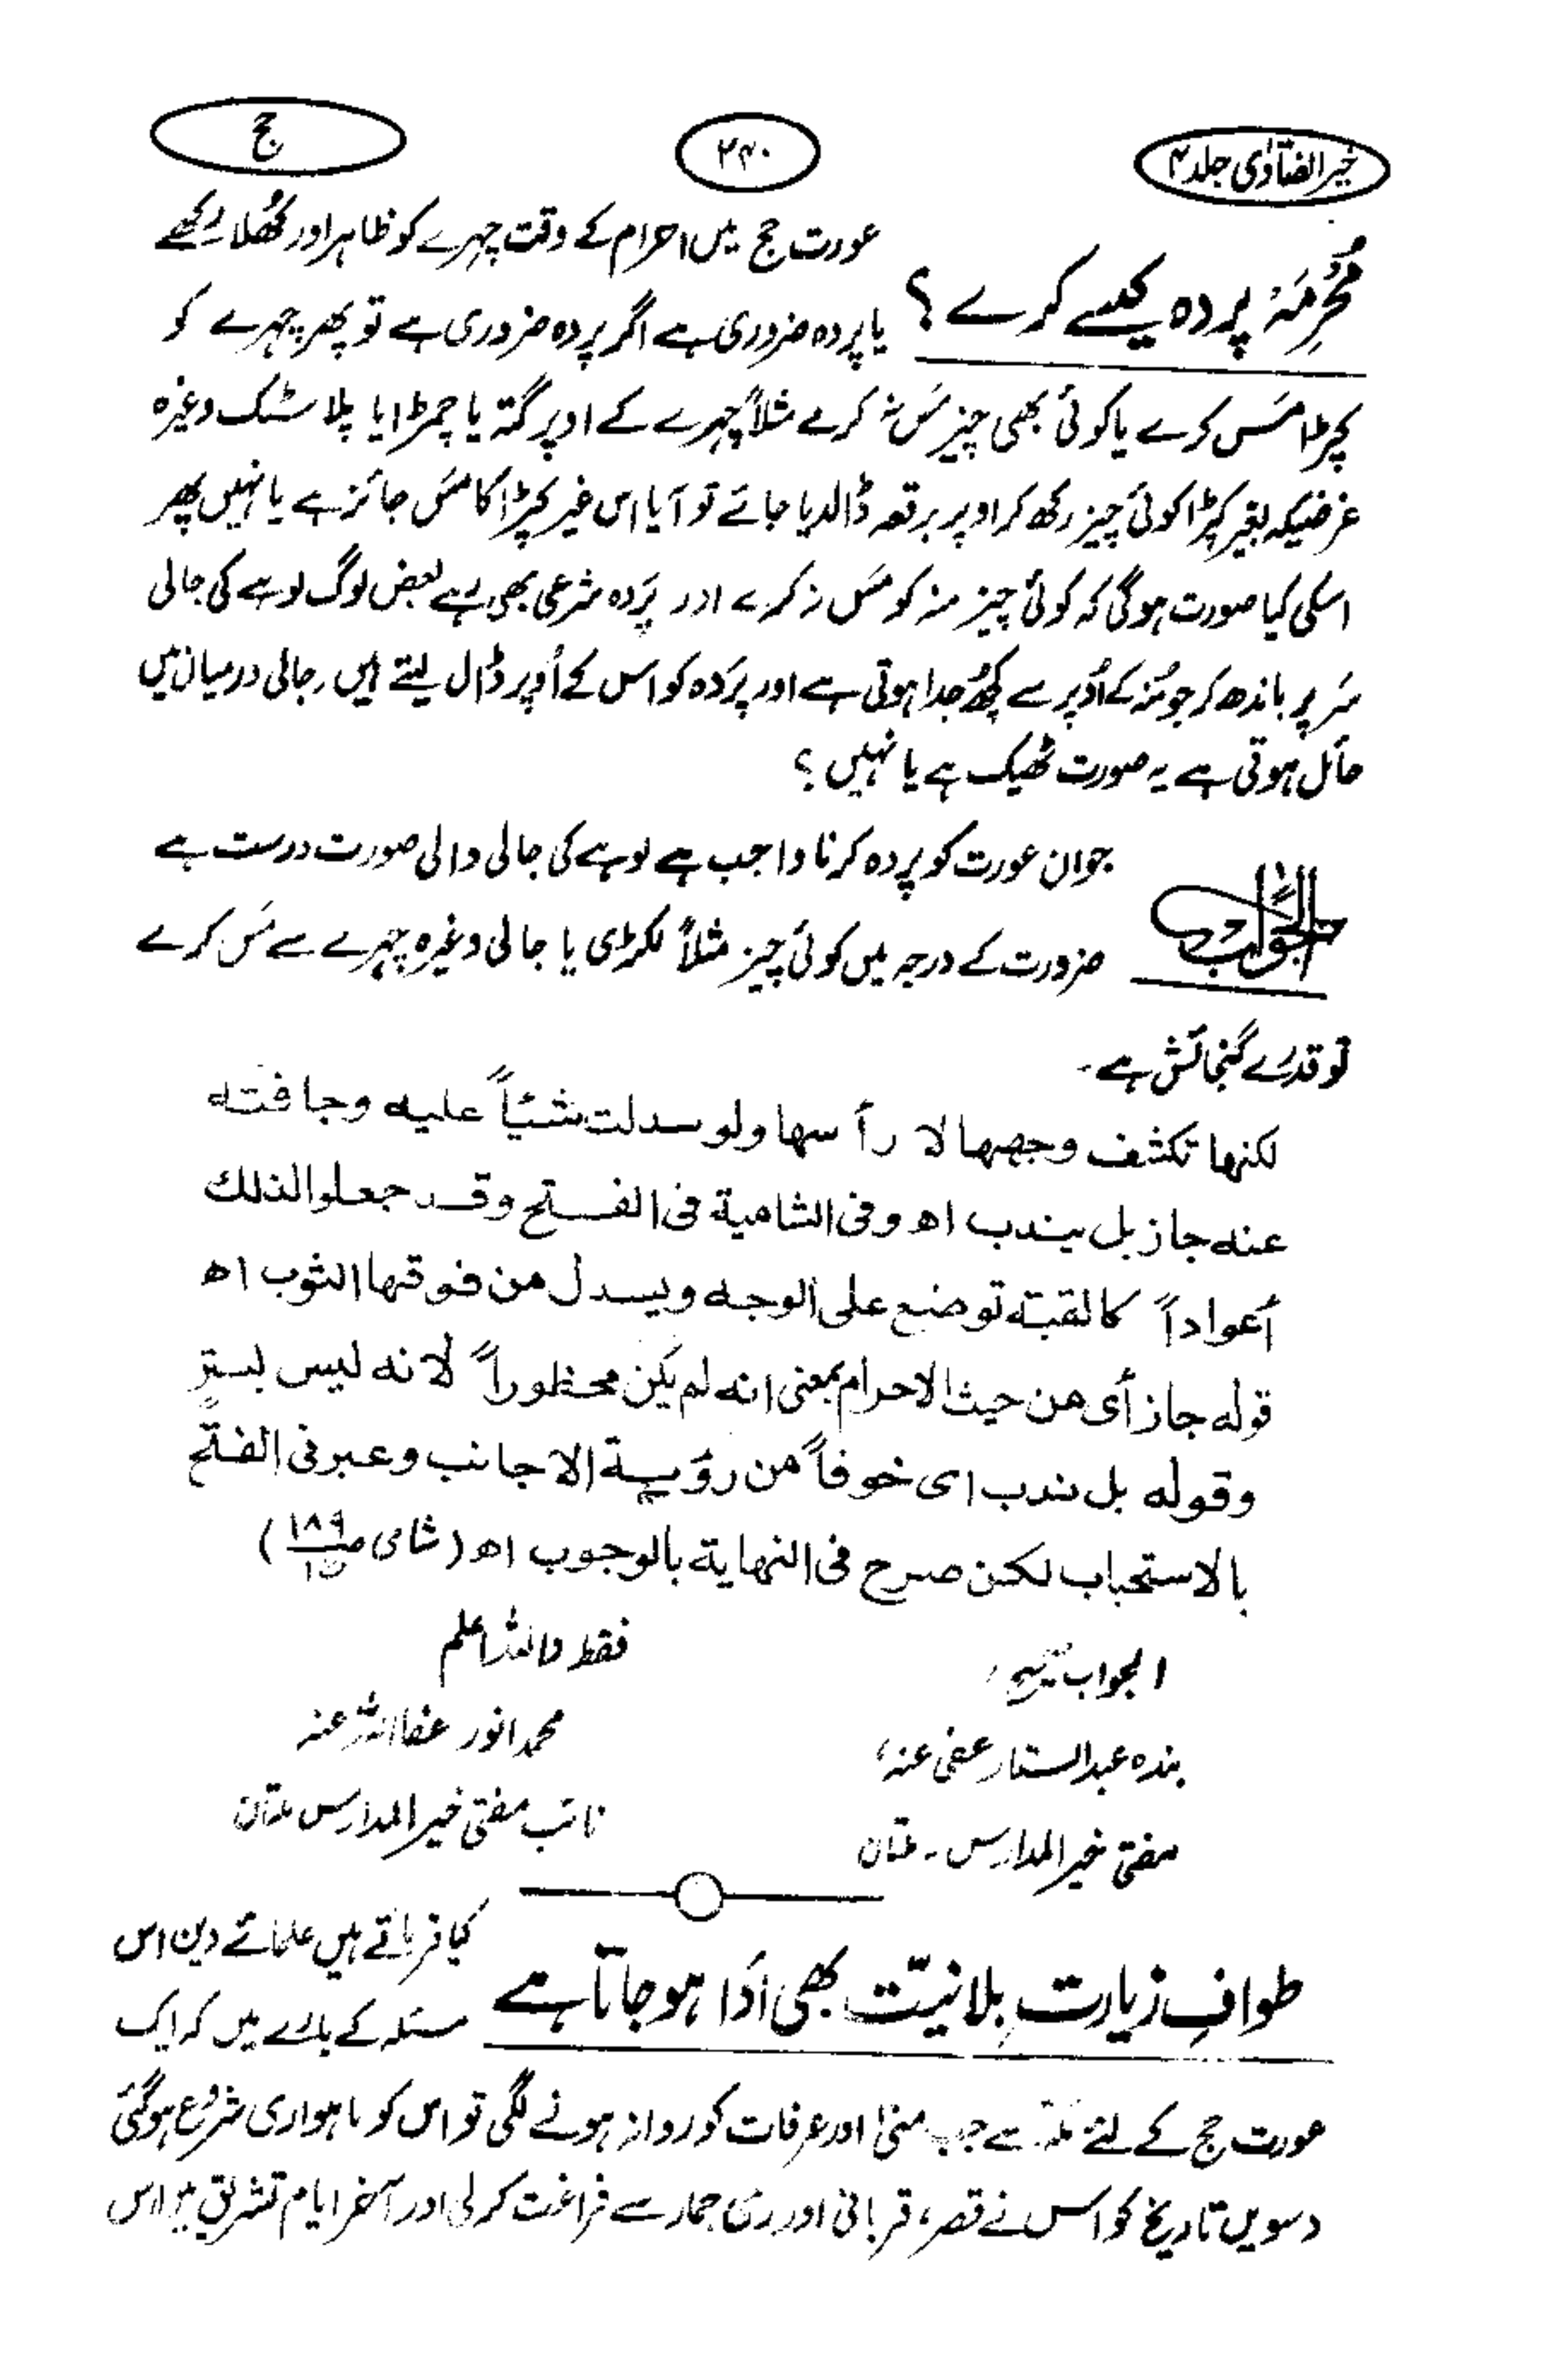 خیر الفتاوٰی جلد ۴
۲۴۰
حج
مُحْرِمَہ پردہ کیسے کرے؟
عورت حج میں احرام کے وقت چہرے کو ظاہر اور کُھلا رکھے
یا پردہ ضروری ہے اگر پردہ ضروری ہے تو پھر چہرے کو
کپڑا مَس کرے یا کوئی بھی چیز مَس نہ کرے مثلاً چہرے کے اوپر گتہ یا چمڑا یا پلاسٹک وغیرہ
غرضیکہ بغیر کپڑا کوئی چیز رکھ کر اوپر برقعہ ڈالدیا جائے تو آیا اس غیر کپڑا کا مَس جائز ہے یا نہیں پھر
اسکی کیا صورت ہوگی کہ کوئی چیز منہ کو مَس نہ کرے اور پَردہ شرعی بھی رہے بعض لوگ لوہے کی جالی
سَر پر باندھ کر جو مُنہ کے اُوپر سے کچھ جدا ہوتی ہے اور پَردہ کو اس کے اُوپر ڈال لیتے ہیں۔ جالی درمیان میں
حائل ہوتی ہے یہ صورت ٹھیک ہے یا نہیں؟
الجواب
جوان عورت کو پردہ کرنا واجب ہے لوہے کی جالی والی صورت درست ہے
ضرورت کے درجہ میں کوئی چیز مثلاً لکڑی یا جالی وغیرہ چہرے سے مَس کرے
تو قدرے گنجائش ہے۔
لكنها تكشف وجهها لا رأسها ولو سدلت شيئاً عليه وجافته
عنه جاز بل يندب اھ وفى الشامية فى الفتح وقد جعلوا لذلك
أعواداً كالقبة توضع على الوجه ويسدل من فوقها الثوب اھ
قوله جاز أى من حيث الاحرام بمعنى انه لم يكن محظوراً لانه ليس بستر
وقوله بل يندب اى خوفاً من رؤية الاجانب وعبر فى الفتح
بالاستحباب لكن صرح فى النهاية بالوجوب اھ (شامى ص ۱۸۹
فقط واللہ اعلم
محمد انور عفا اللہ عنہ
نائب مفتی خیر المدارس ملتان
الجواب صحیح،
بندہ عبدالستار عفی عنہ،
مفتی خیر المدارس۔ ملتان
طوافِ زیارت بِلانیّت بھی اَدَا ہو جاتا ہے
کیا فرماتے ہیں علمائے دین اس
مسئلہ کے بارے میں کہ ایک
عورت حج کے لئے مکہ سے جب منیٰ اور عرفات کو روانہ ہونے لگی تو اس کو ماہواری شروع ہو گئی
دسویں تاریخ کو اس نے قصر، قربانی اور رمی جمار سے فراغت کر لی اور آخر ایام تشریق میں اس